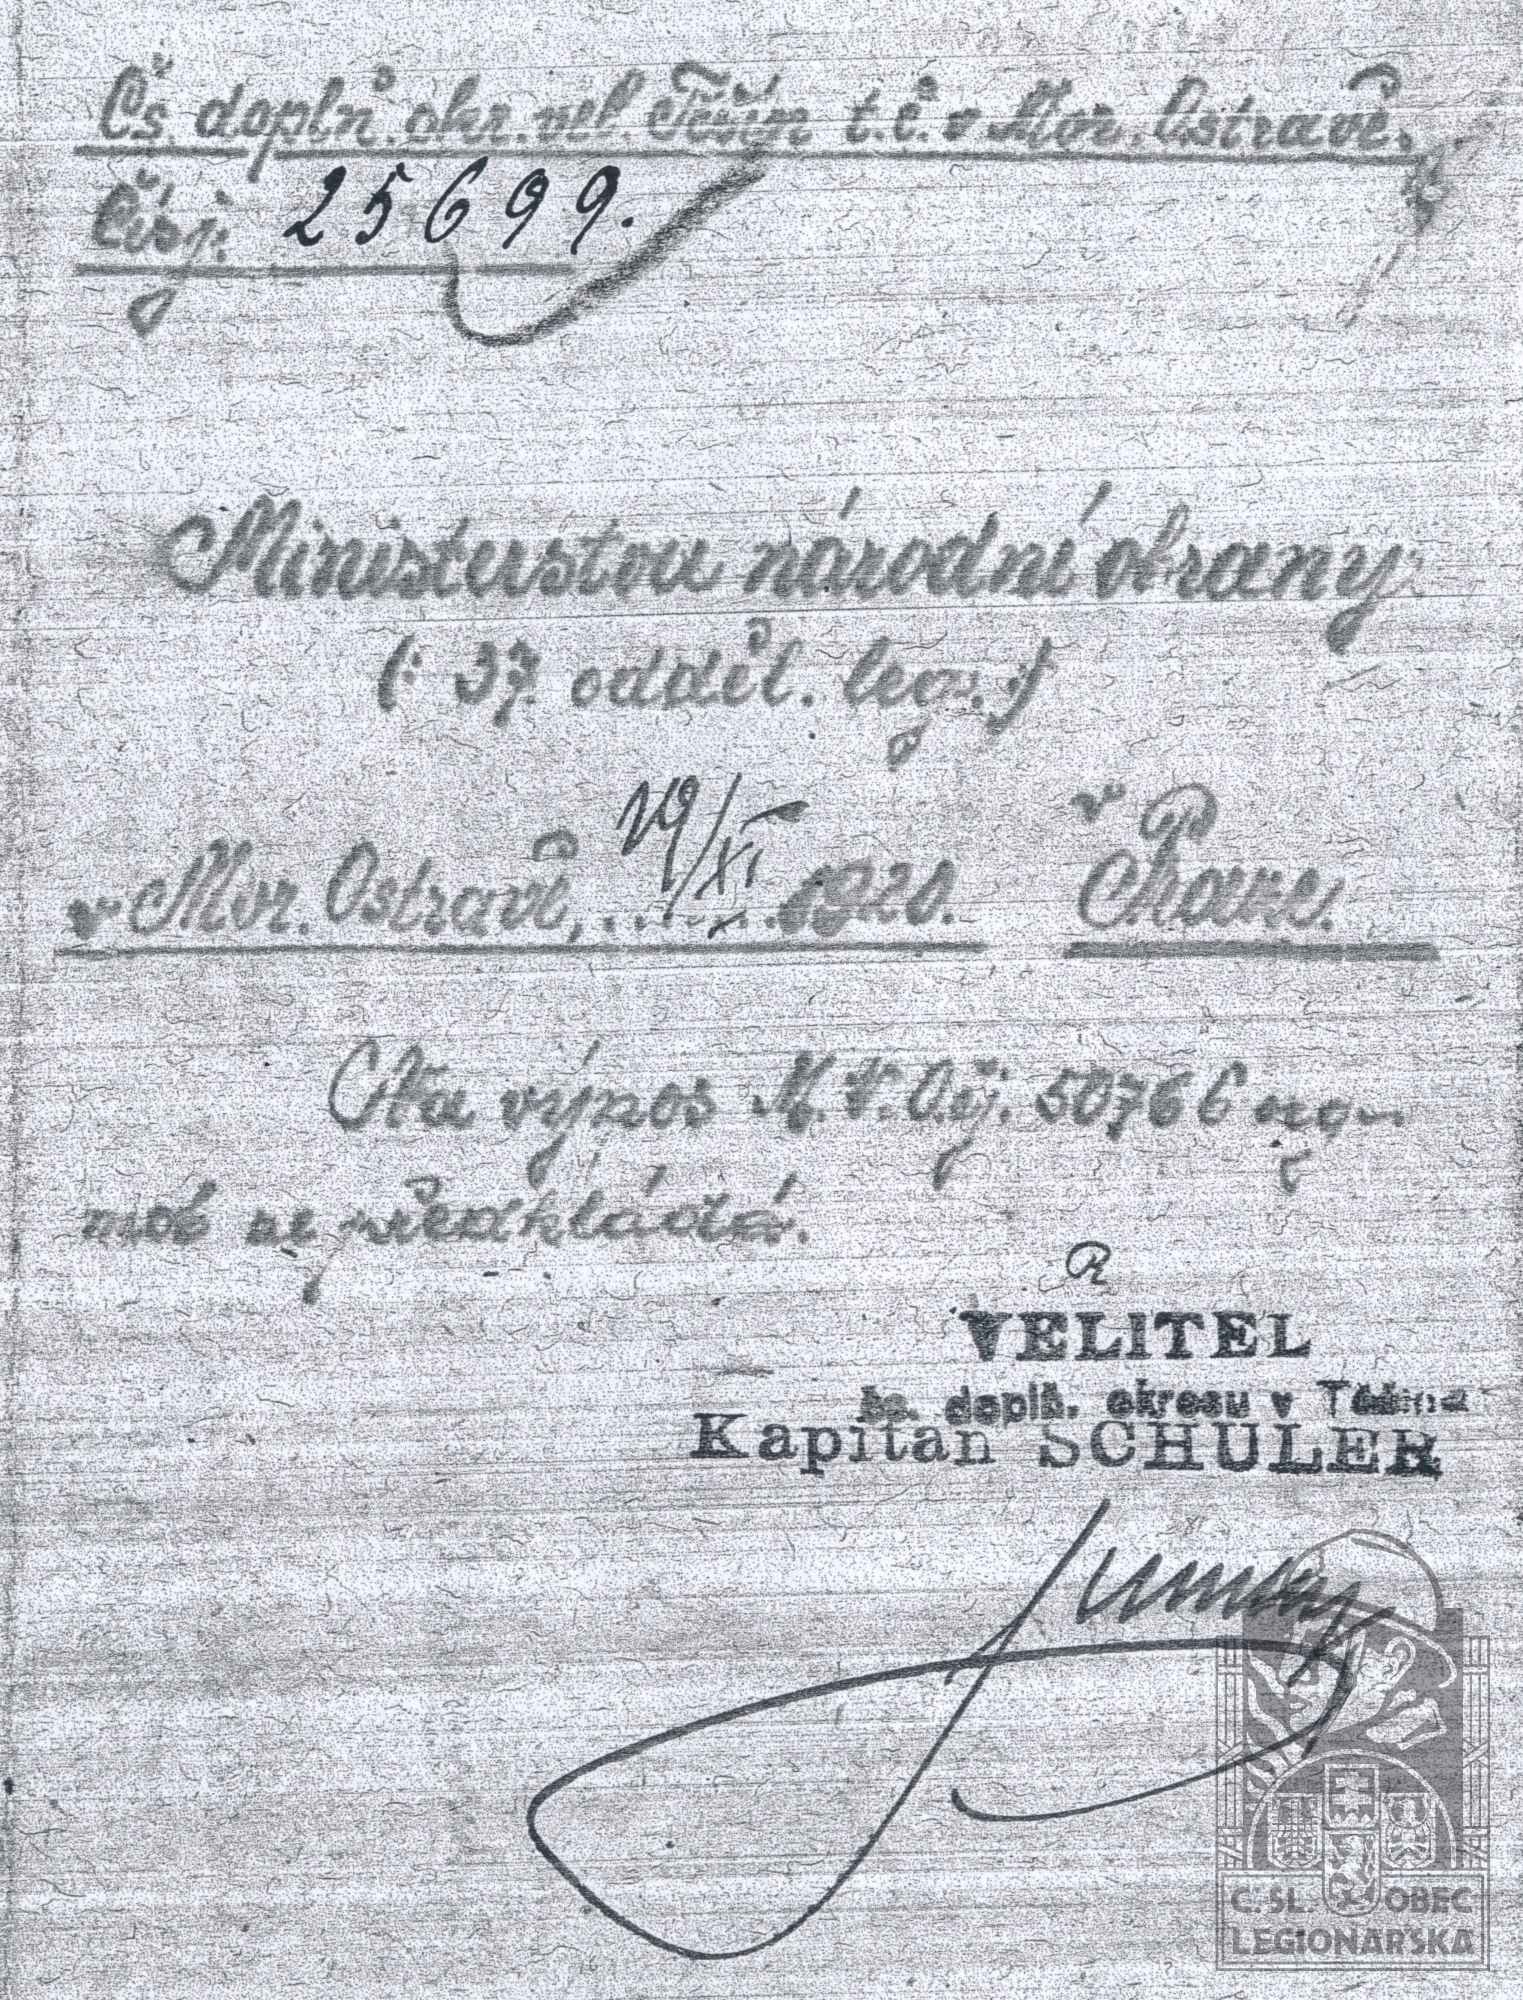 Čs. doplň. okr. vel. Těšín t.č. v Mor. Ostravě.
Čís.j: 25699.
Ministerstvu národní obrany
(: 37. odděl. leg. :)
v Mor. Ostravě, 19/XI 1920. v Praze.
Na výnos M.N.O. čj. 50766
se předkládá.
R
VELITEL
čs. doplň. okresu v Těšíně
Kapitán SCHULER
Č.SL. OBEC
LEGIONÁŘSKÁ